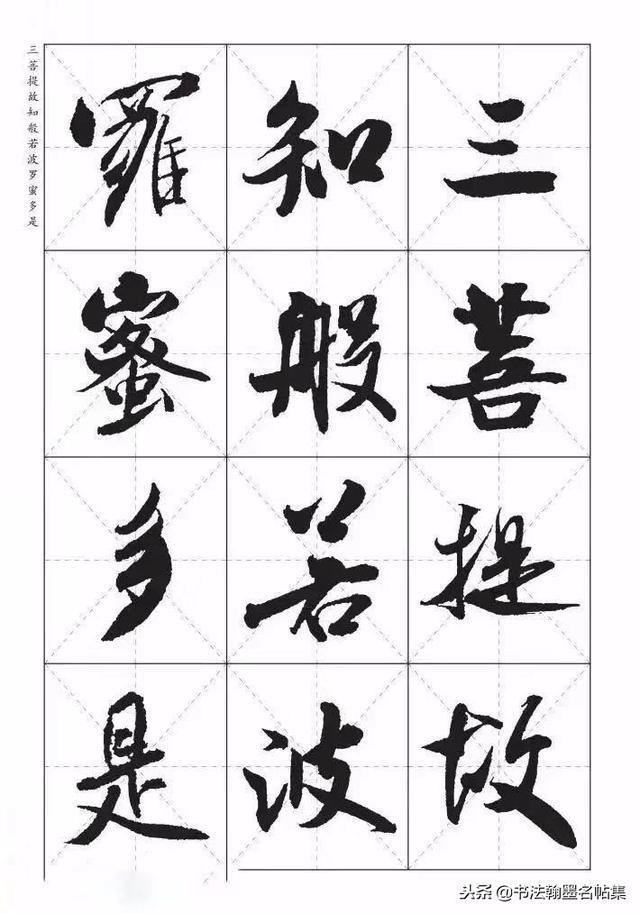 三菩提故知般若波罗蜜多是
三菩提故
知般若波
羅蜜多是
头条@书法翰墨名帖集